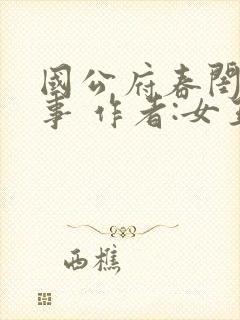 國公府春閨
事 作者:女
西樵